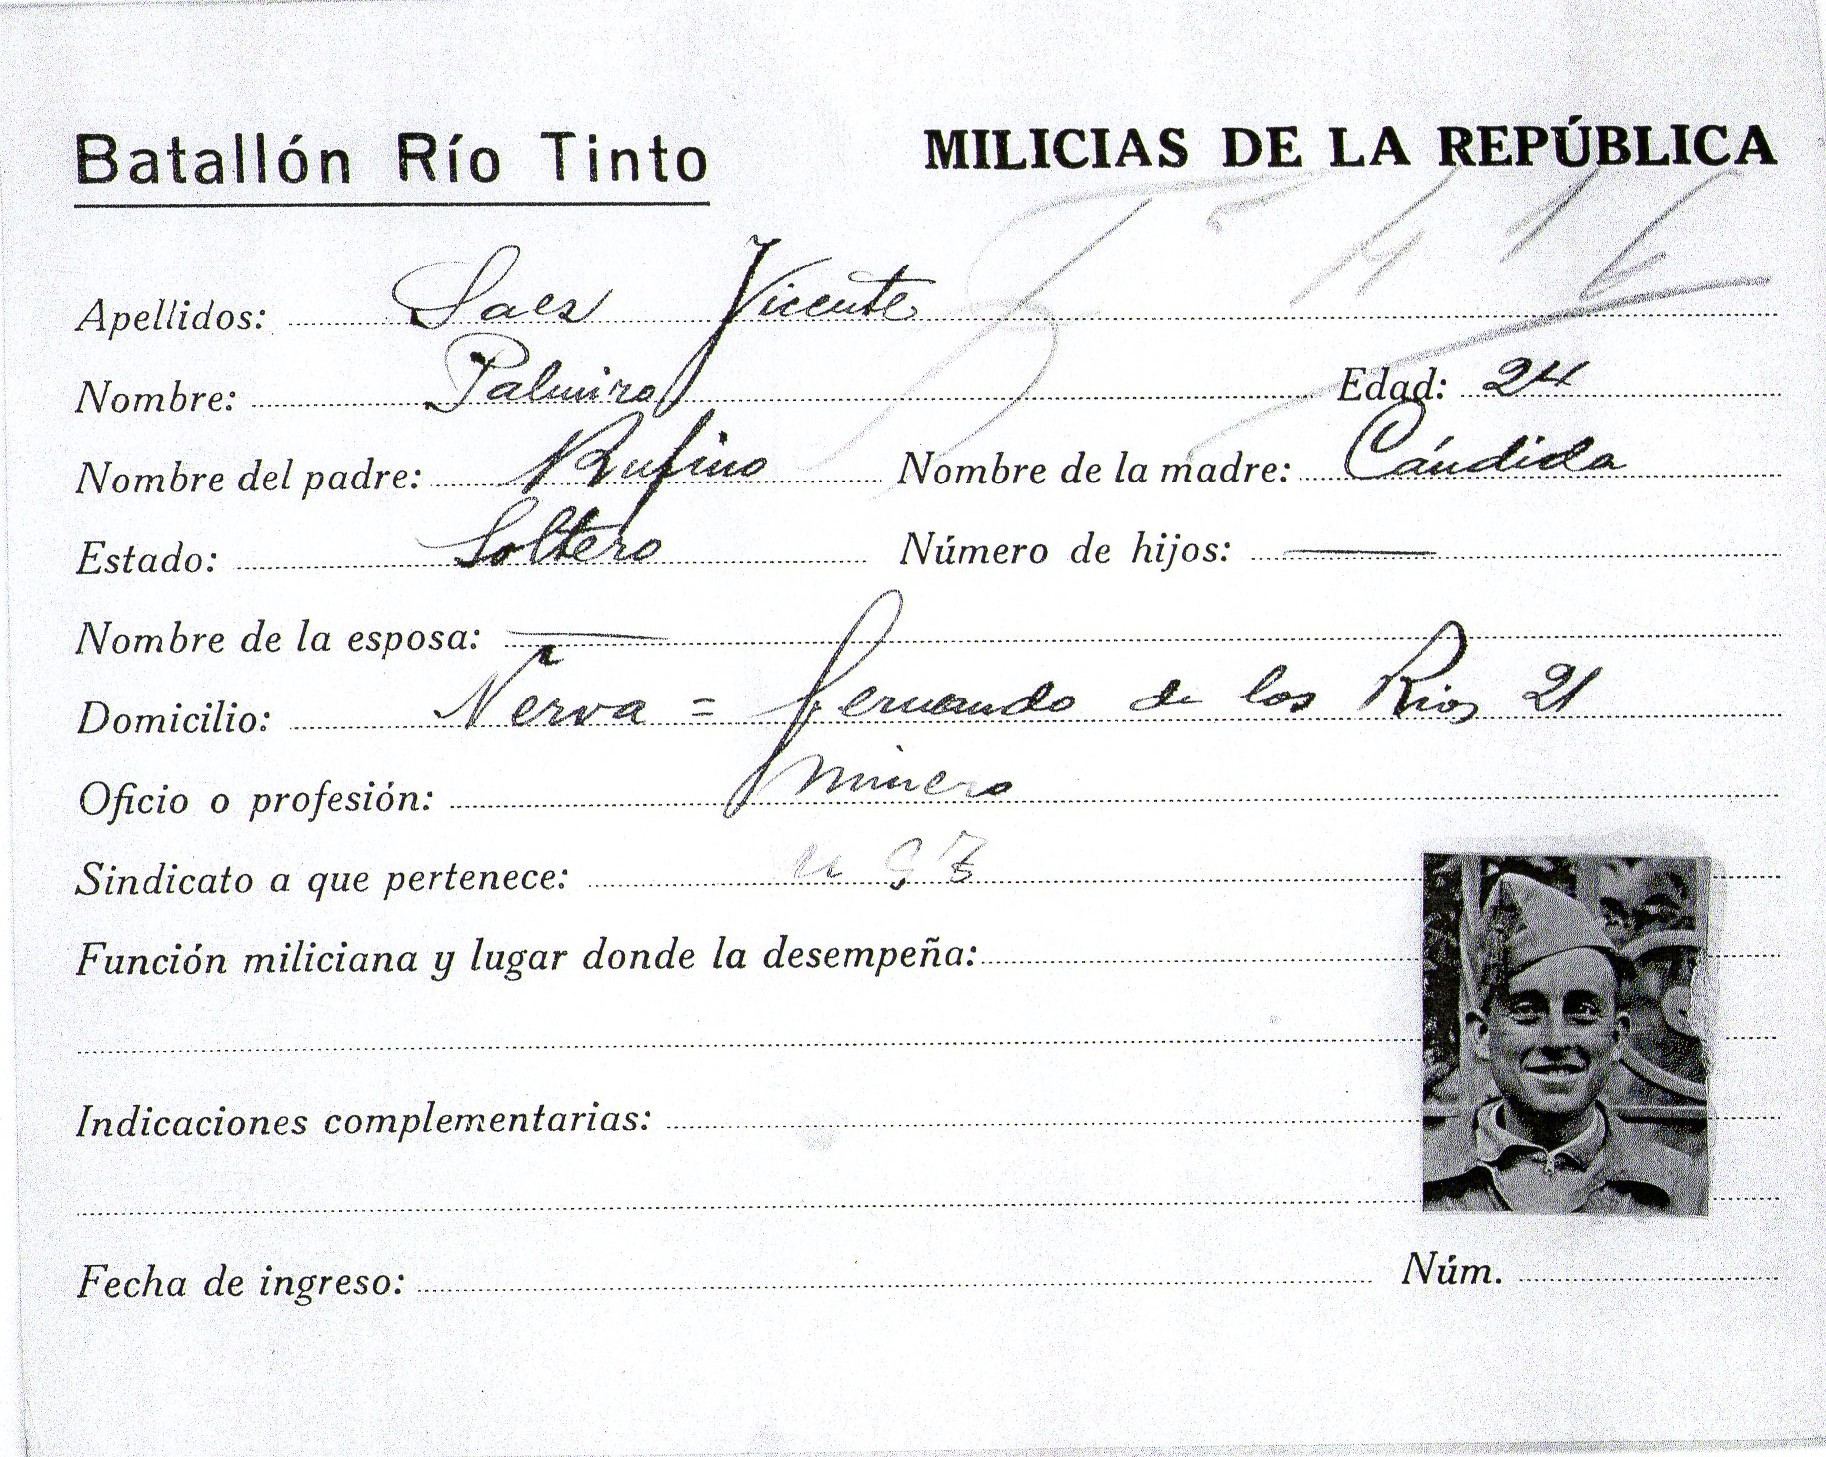 Batallón Río Tinto MILICIAS DE LA REPÚBLICA
Apellidos: Saes Vicente
Nombre: Palmiro Edad: 24
Nombre del padre: Rufino Nombre de la madre: Cándida
Estado: Soltero Número de hijos: —
Nombre de la esposa: —
Domicilio: Nerva = Fernando de los Rios 21
Oficio o profesión: minero
Sindicato a que pertenece: U G T
Función miliciana y lugar donde la desempeña:
Indicaciones complementarias:
Fecha de ingreso: Núm.